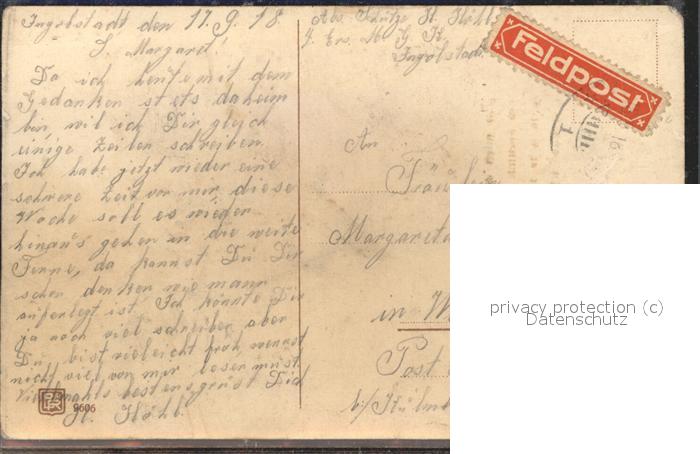 Ingolstadt, den 17.9.18.
L. Margaret!
Da ich heute mit dem
Gedanken stets daheim
bin, wil ich Dir gleich
einige Zeilen schreiben.
Ich habe jetzt wieder eine
schwere Zeit vor mir, diese
Woche soll es wieder
hinaus gehen in die weite
Ferne, da kannst Du Dir
schon denken wie mann
aufgelegt ist. Ich könnte Dir
ja noch viel schreiben aber
Du bist vieleicht froh wennst
nicht viel von mir lesen must.
bestens grüst Dich
Höhl.
Abs. Schütze H. Höhl
Ers. M. G. K.
Ingolstadt.
Feldpost
An
Fräulein
Margareta
in W
Post
b/Kulmb
9606
privacy protection (c)
Datenschutz